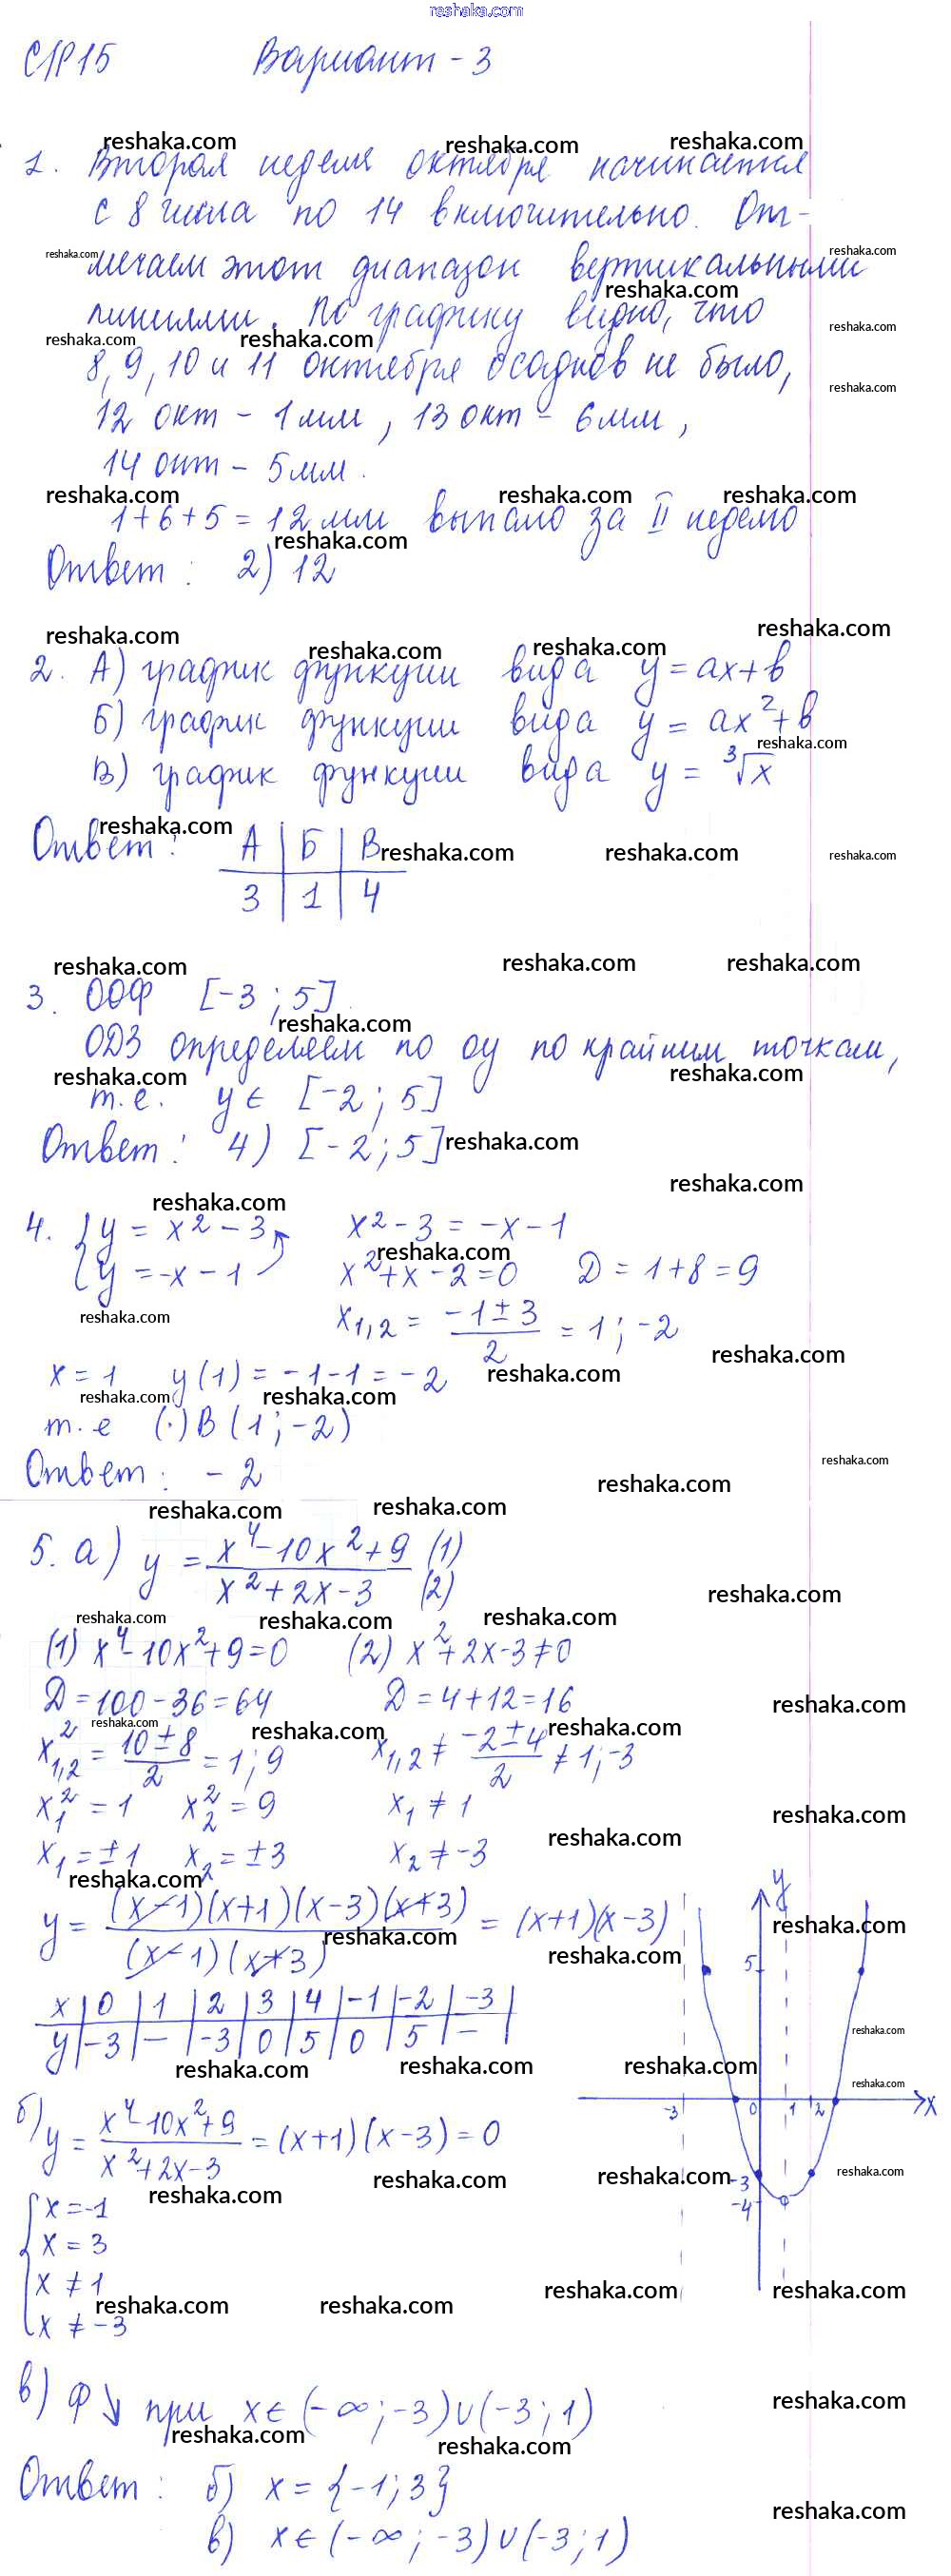 reshaka.com
С/Р 15 Вариант - 3
1. Вторая неделя октября начинается
с 8 числа по 14 включительно. От-
мечаем этот диапазон вертикальными
линиями. По графику видно, что
8, 9, 10 и 11 октября осадков не было,
12 окт - 1 мм, 13 окт - 6 мм,
14 окт - 5 мм.
1 + 6 + 5 = 12 мм выпало за II неделю
Ответ: 2) 12
2. А) график функции вида y = ax + b
Б) график функции вида y = ax² + b
В) график функции вида y = ³√x
Ответ: А | Б | В
3 | 1 | 4
3. ООФ [-3; 5].
ОДЗ определяем по оу по крайним точкам,
т.е. y ∈ [-2; 5]
Ответ: 4) [-2; 5]
4. { y = x² - 3 x² - 3 = -x - 1
{ y = -x - 1 x² + x - 2 = 0 D = 1 + 8 = 9
x₁,₂ = (-1 ± 3)/2 = 1; -2
x = 1 y(1) = -1 - 1 = -2
т.е (·) B (1; -2)
Ответ: -2
5. а) y = (x⁴ - 10x² + 9)/(x² + 2x - 3) (1) (2)
(1) x⁴ - 10x² + 9 = 0 (2) x² + 2x - 3 ≠ 0
D = 100 - 36 = 64 D = 4 + 12 = 16
x²₁,₂ = (10 ± 8)/2 = 1; 9 x₁,₂ ≠ (-2 ± 4)/2 ≠ 1; -3
x₁² = 1 x₂² = 9 x₁ ≠ 1
x₁ = ±1 x₂ = ±3 x₂ ≠ -3
y = (x-1)(x+1)(x-3)(x+3)/(x-1)(x+3) = (x+1)(x-3)
x | 0 | 1 | 2 | 3 | 4 | -1 | -2 | -3 |
y | -3 | - | -3 | 0 | 5 | 0 | 5 | - |
y
5
-3 0 1 2 x
-3
-4
б) y = (x⁴ - 10x² + 9)/(x² + 2x - 3) = (x+1)(x-3) = 0
{ x = -1
x = 3
x ≠ 1
x ≠ -3
в) ф ↘ при x ∈ (-∞; -3) ∪ (-3; 1)
Ответ: б) x = {-1; 3}
в) x ∈ (-∞; -3) ∪ (-3; 1)